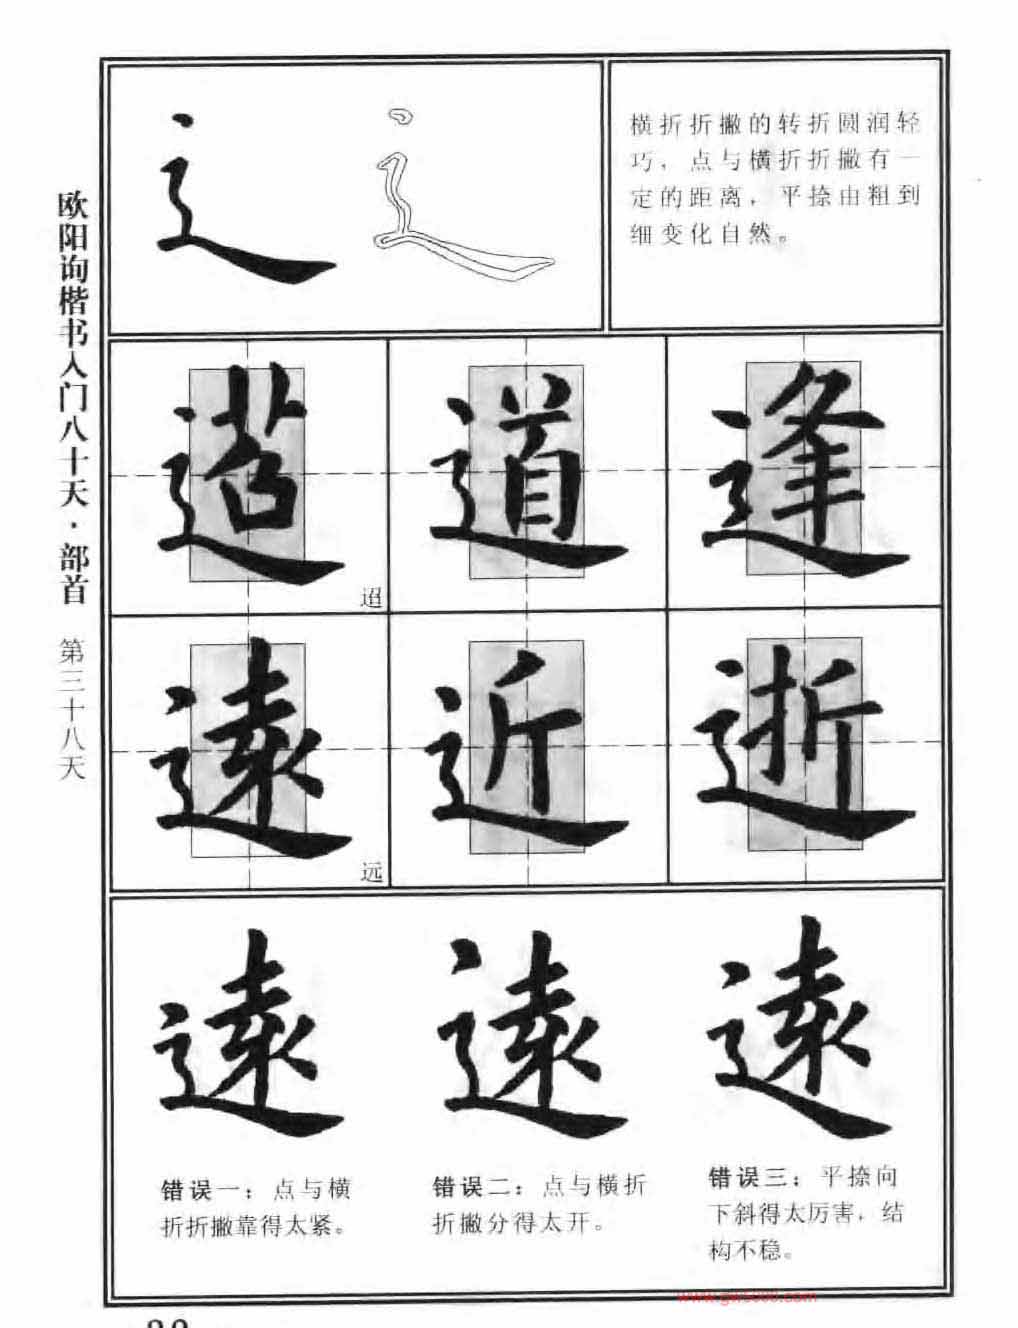 欧阳询楷书入门八十天·部首 第三十八天
横折折撇的转折圆润轻
巧，点与横折折撇有一
定的距离，平捺由粗到
细变化自然。
道
逢
迢
遠
近
逝
远
遠
遠
遠
错误一：点与横
折折撇靠得太紧。
错误二：点与横折
折撇分得太开。
错误三：平捺向
下斜得太厉害，结
构不稳。